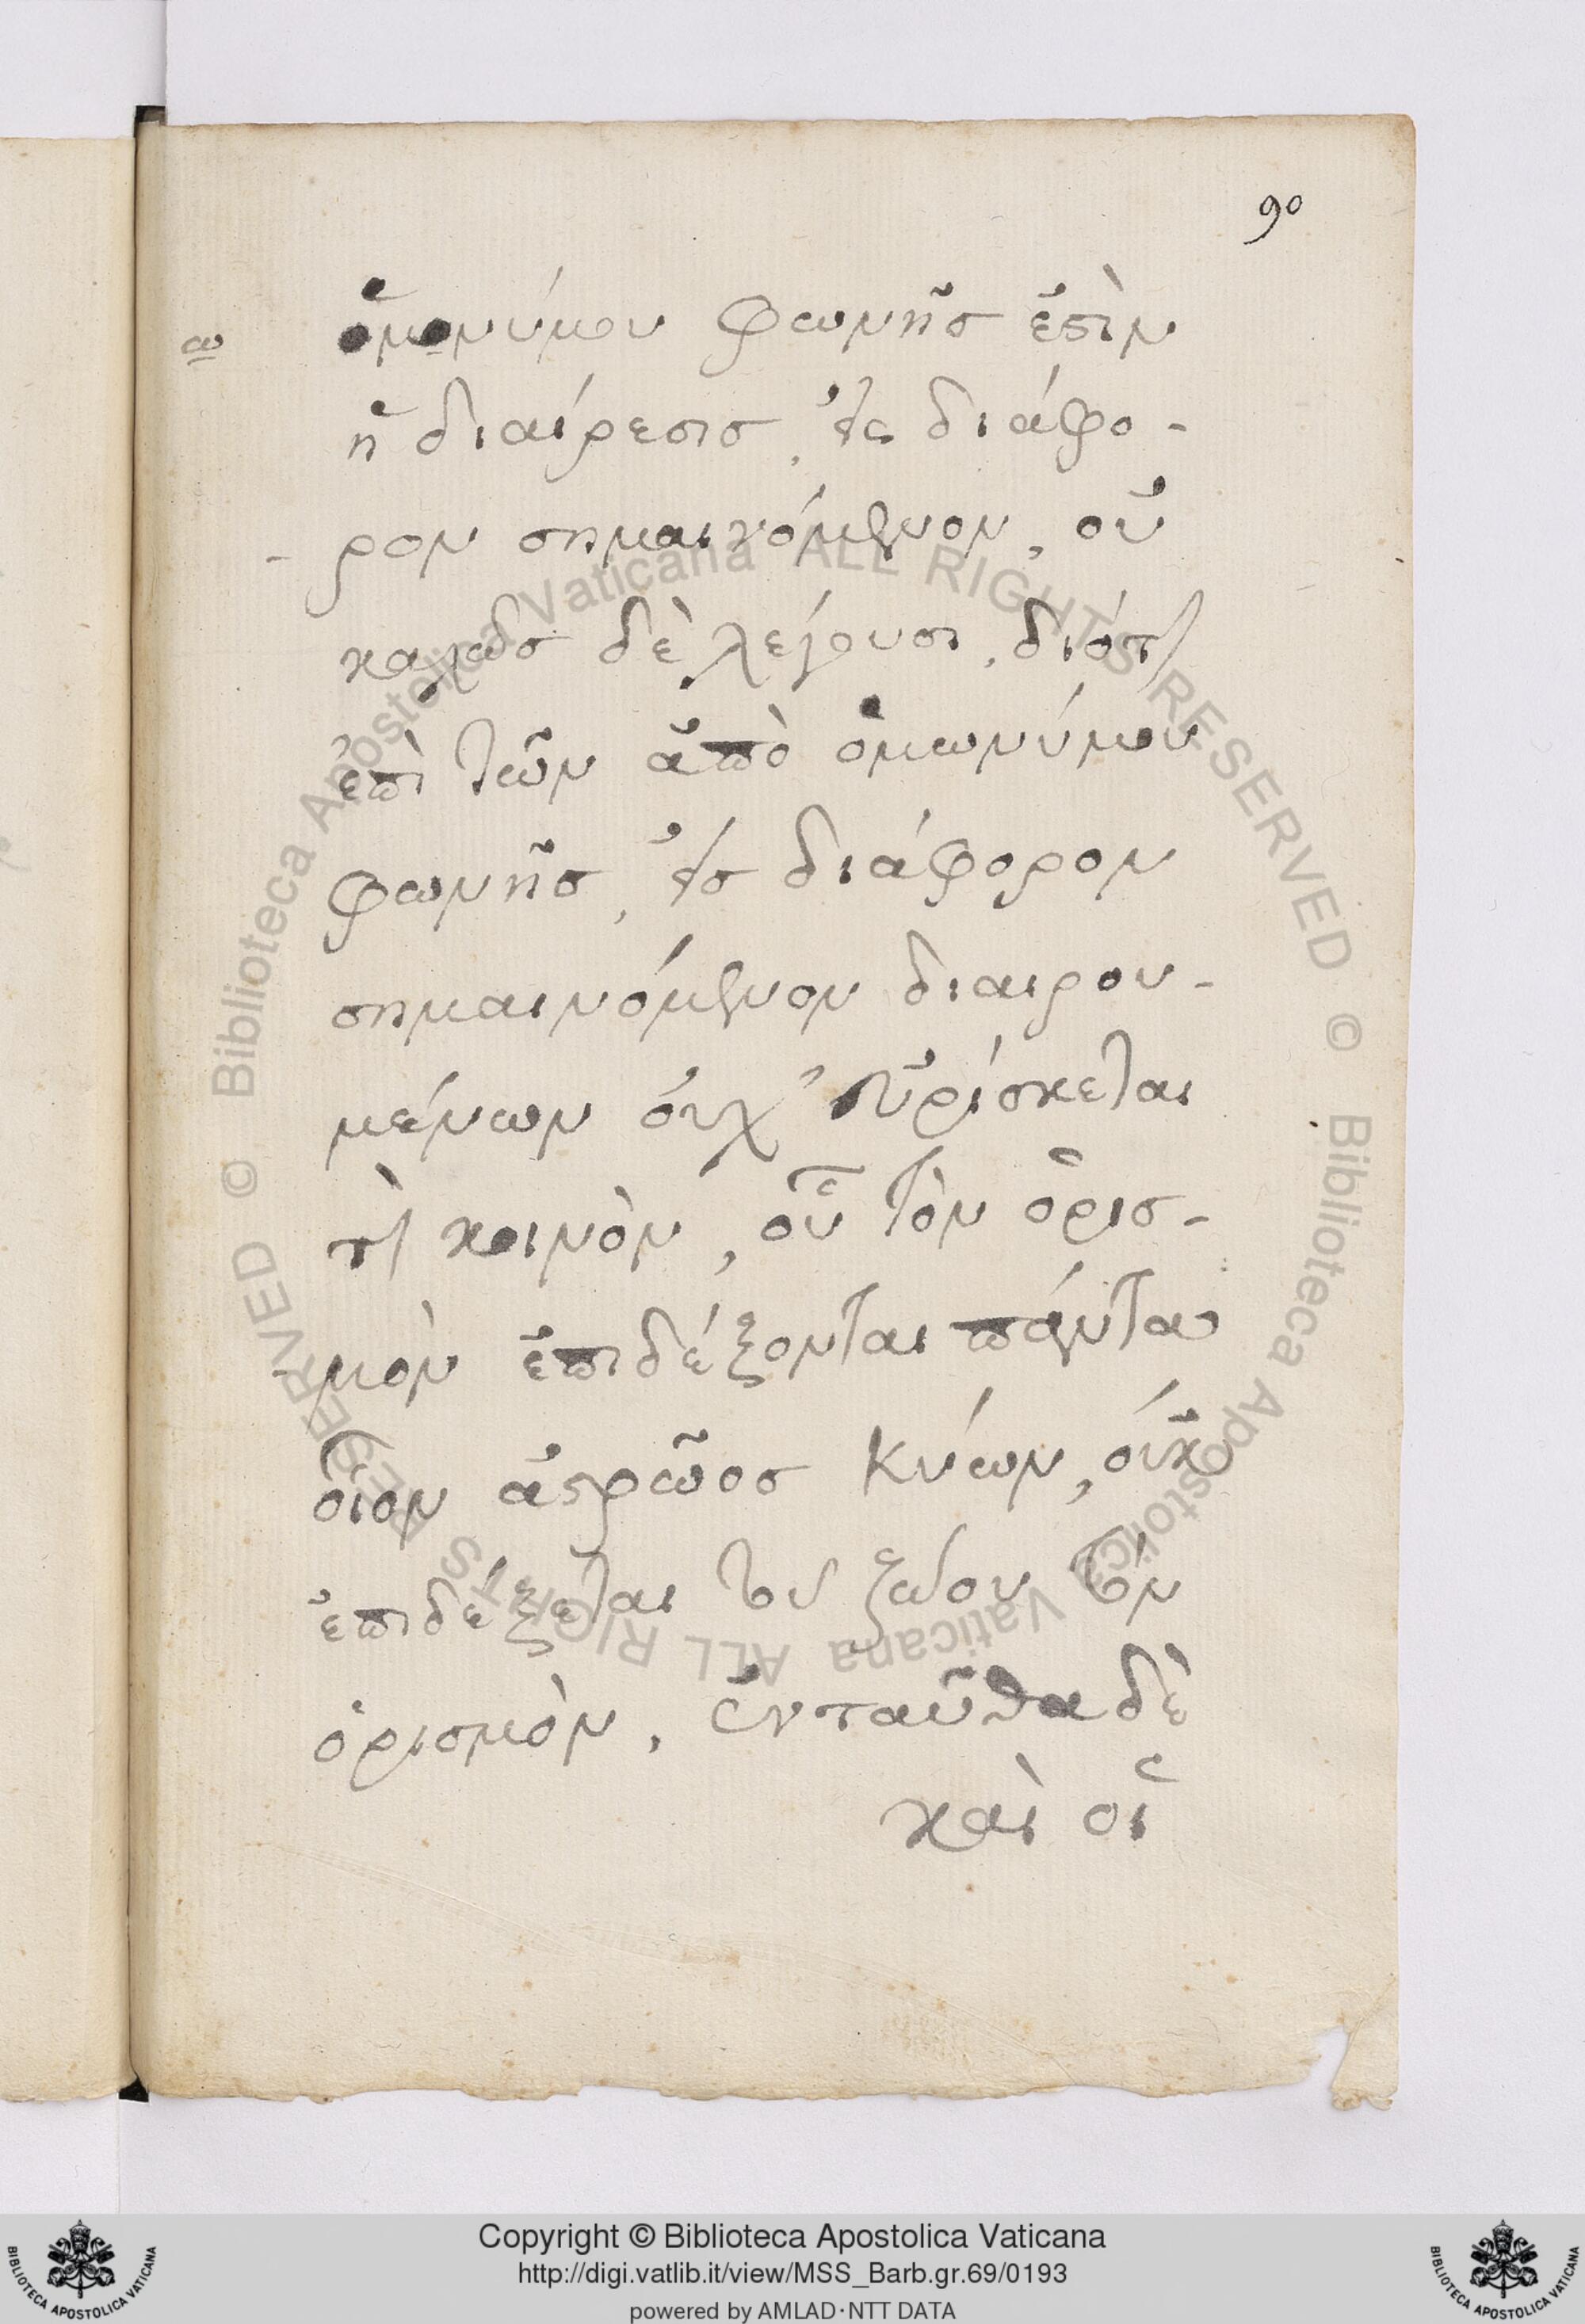 90
ω ὁμονύμου φωνῆς ἐστὶν
ἡ διαίρεσις, εἰς διάφο-
- ρον σημαινόμενον, οὐ
καλῶς δὲ λέγουσι, διότι
ἐπὶ τῶν ἀπὸ ὁμωνύμου
φωνῆς, εἰς διάφορον
σημαινόμενον διαιρου-
μένων οὐχ εὑρίσκεται
τὶ κοινὸν, οὗ τὸν ὁρισ-
μὸν ἐπιδέξονται πάντα
οἷον ἀστρῶος κύων, οὐκ
ἐπιδέξεται τοῦ ζώου τὸν
ὁρισμὸν, ἐνταῦθα δὲ
καὶ οἱ
Copyright © Biblioteca Apostolica Vaticana
http://digi.vatlib.it/view/MSS_Barb.gr.69/0193
powered by AMLAD·NTT DATA
BIBLIOTECA APOSTOLICA VATICANA
BIBLIOTECA APOSTOLICA VATICANA
© Biblioteca Apostolica Vaticana ALL RIGHTS RESERVED
© Biblioteca Apostolica Vaticana ALL RIGHTS RESERVED